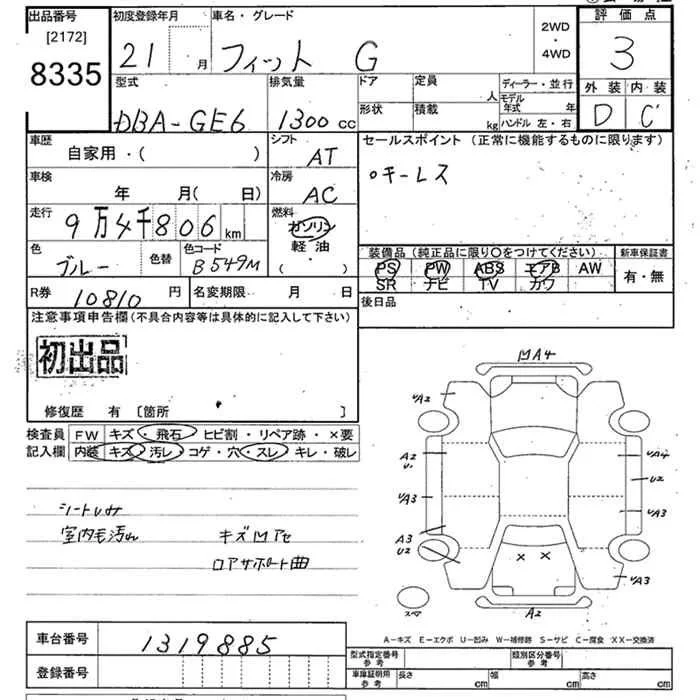 出品番号
[2172]
8335
初度登録年月
21 月
車名・グレード
フィット G
2WD
・
4WD
評価点
3
外装 内装
D C'
型式
DBA-GE6
排気量
1300 cc
ドア
定員 人
形状
積載 kg
ディーラー・並行
モデル年式 年
ハンドル 左・右
車歴
自家用・( )
シフト
AT
セールスポイント (正常に機能するものに限ります)
○キーレス
車検
年 月( 日)
冷房
AC
走行
9万4千806km
燃料
ガソリン
軽油
( )
色
ブルー
色替
色コード
B549M
装備品 (純正品に限り○をつけてください)
PS PW ABS エアB AW
SR ナビ TV カワ
新車保証書
有・無
R券 10810 円
名変期限 月 日
後日品
注意事項申告欄 (不具合内容等は具体的に記入して下さい)
初出品
修復歴 有 〔箇所 〕
検査員 FW キズ・飛石・ヒビ割・リペア跡・×要
記入欄 内装 キズ・汚レ・コゲ・穴・スレ・キレ・破レ
室内毛汚れ
キズMアセ
ロアサポート曲
MA4
A2
A2
A3
A3
U2
A4
U2
A3
A3
A2
× ×
スペア
A-キズ E-エクボ U-凹み W-補修跡 S-サビ C-腐食 XX-交換済
車台番号 1319885
登録番号
型式指定番号 参考
類別区分番号 参考
車庫証明用 参考
長さ cm
幅 cm
高さ cm